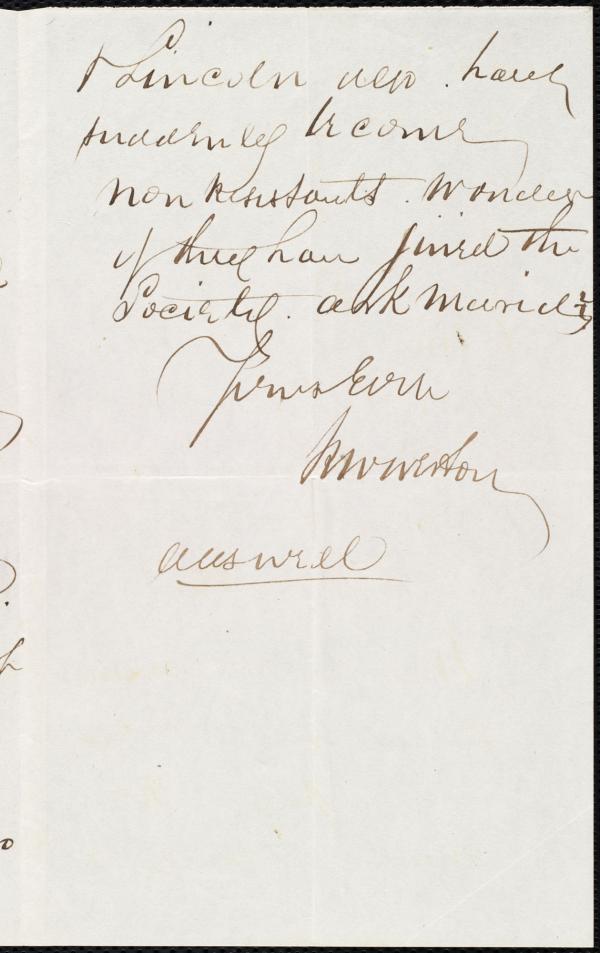 & Lincoln men. have
suddenly become
non resistants. Wonder
if they have joined the
Society. ask Maria
Yours Ever
Answered